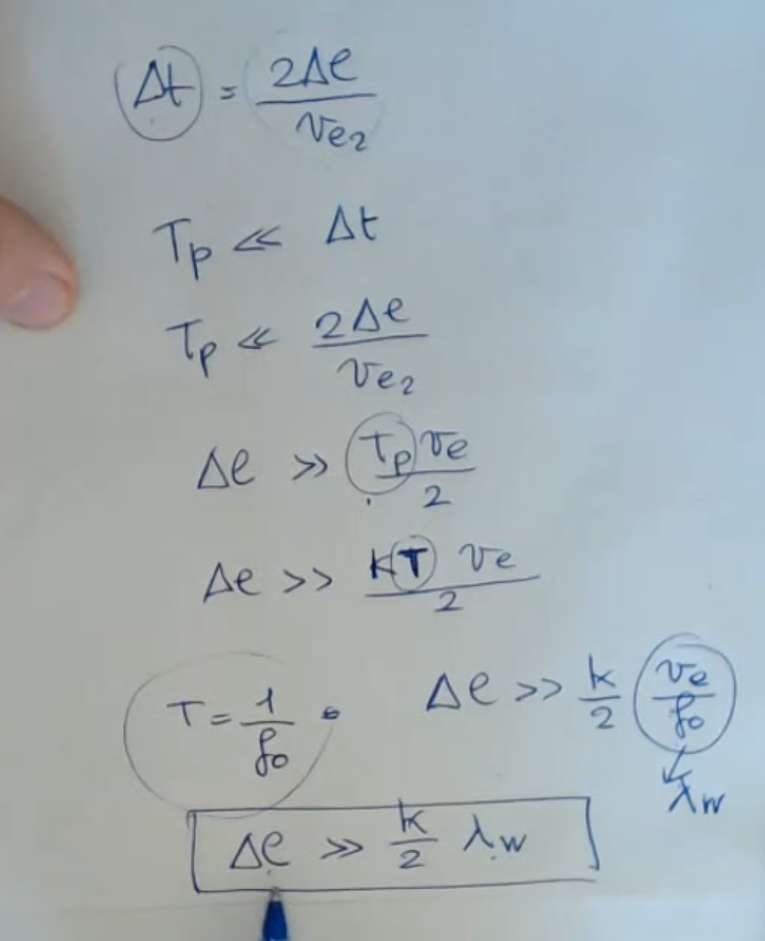 Δt = 2Δe / ve₂
Tp ≪ Δt
Tp ≪ 2Δe / ve₂
Δe ≫ Tp ve / 2
Δe >> kT ve / 2
T = 1 / f₀
Δe >> k/2 ve/f₀
λw
Δe ≫ k/2 λw